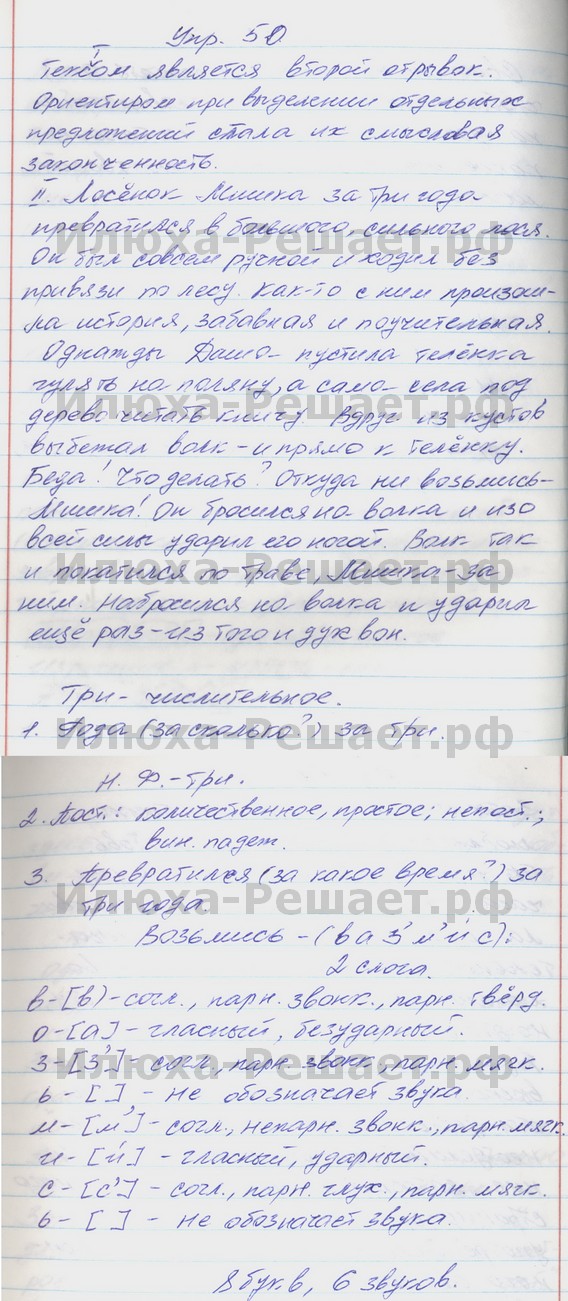 Упр. 50
I
Текстом является второй отрывок.
Ориентиром при выделении отдельных
предложений стала их смысловая
законченность.
II. Лосёнок Мишка за три года
превратился в большого, сильного лося.
Он был совсем ручной и ходил без
привязи по лесу. Как-то с ним произош-
ла история, забавная и поучительная.
Однажды Даша пустила телёнка
гулять на поляну, а сама села под
дерево читать книгу. Вдруг из кустов
выбежал волк – и прямо к телёнку.
Беда! Что делать? Откуда ни возьмись –
Мишка! Он бросился на волка и изо
всей силы ударил его ногой. Волк так
и покатился по траве, Мишка – за
ним. Набросился на волка и ударил
ещё раз – из того и дух вон.
Три – числительное.
1. Года (за сколько?) за три.
Н. Ф. – три.
2. Пост.: количественное, простое; непост.:
вин. падеж.
3. Превратился (за какое время?) за
три года.
Возьмись – (в а з' м' и́ с):
2 слога.
в – [в) – согл., парн. звонк., парн. твёрд.
о – [а] – гласный, безударный.
з – [з'] – согл., парн. звонк., парн. мягк.
ь – [ ] – не обозначает звука.
м – [м'] – согл., непарн. звонк., парн. мягк.
и – [и́] – гласный, ударный.
с – [с'] – согл., парн. глух., парн. мягк.
ь – [ ] – не обозначает звука.
8 букв, 6 звуков.
Илюха-Решает.рф
Илюха-Решает.рф
Илюха-Решает.рф
Илюха-Решает.рф
Илюха-Решает.рф